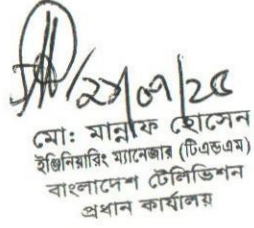 ২২/০৭/২৫
মো: মান্নাফ হোসেন
ইঞ্জিনিয়ারিং ম্যানেজার (টিএন্ডএম)
বাংলাদেশ টেলিভিশন
প্রধান কার্যালয়